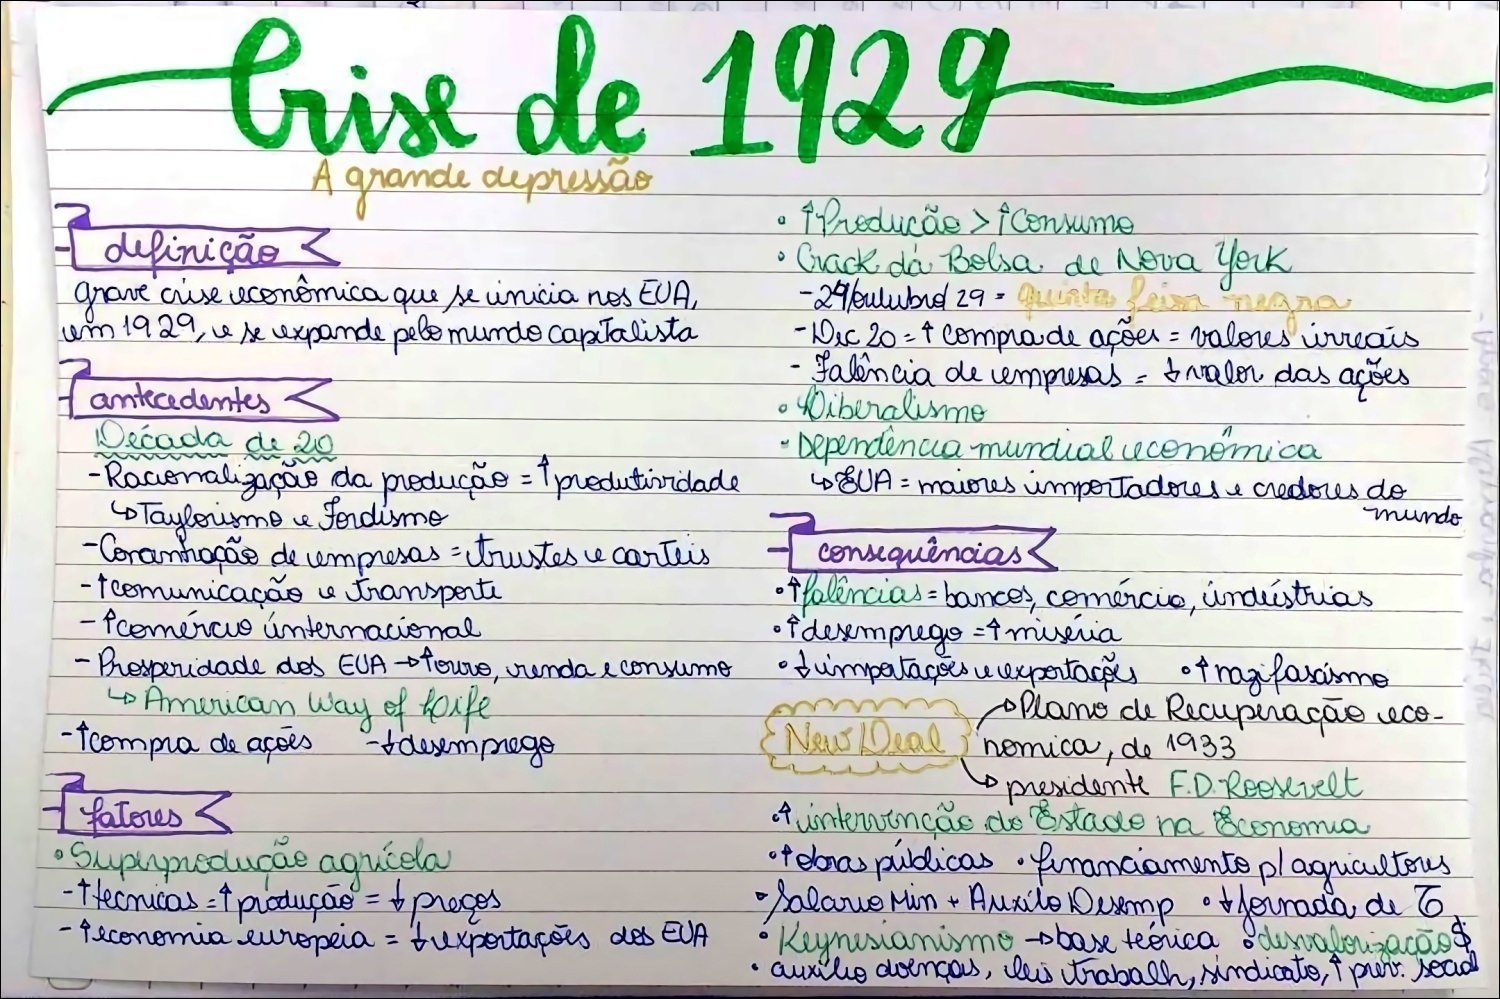 Crise de 1929
A grande depressão
definição
grave crise econômica que se inicia nos EUA,
em 1929, e se expande pelo mundo capitalista
antecedentes
Década de 20
- Racionalização da produção = ↑ produtividade
↳ Taylorismo e Fordismo
- Concentração de empresas = trustes e carteis
- ↑ comunicação e transporte
- ↑ comércio internacional
- Prosperidade dos EUA → ↑ ouro, renda e consumo
↳ American Way of Life
- ↑ compra de ações - ↓ desemprego
fatores
• Superprodução agrícola
- ↑ técnicas = ↑ produção = ↓ preços
- ↑ economia europeia = ↓ exportações dos EUA
• ↑ Produção > ↑ Consumo
• Crack da Bolsa de Nova York
- 24/outubro/29 = quinta feira negra
- Dec 20 = ↑ compra de ações = valores irreais
- Falência de empresas = ↓ valor das ações
• Liberalismo
• Dependência mundial econômica
↳ EUA = maiores importadores e credores do
mundo
consequências
• ↑ falências = bancos, comércio, indústrias
• ↑ desemprego = ↑ miséria
• ↓ importações e exportações • ↑ nazifascismo
New Deal → Plano de Recuperação eco-
nomica, de 1933
→ presidente F.D. Roosevelt
• ↑ intervenção do Estado na Economia
• ↑ obras públicas • financiamento p/ agricultores
• Salario Min + Auxílio Desemp • ↓ Jornada de T
• Keynesianismo → base teórica • desvalorização $
• auxílio doenças, leis trabalh, sindicato, ↑ prev. social